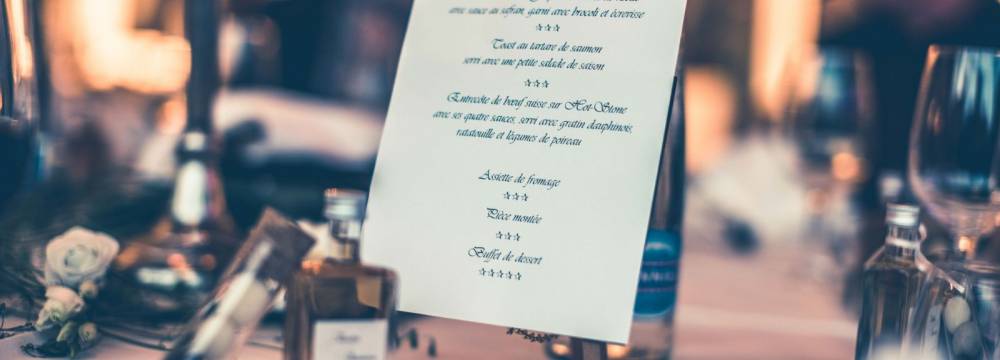 avec sauce au safran, garni avec brocoli et écrevisse
Toast au tartare de saumon
servi avec une petite salade de saison
Entrecôte de bœuf suisse sur Hot-Stone
avec ses quatre sauces, servi avec gratin dauphinois,
ratatouille et légumes de poireau
Assiette de fromage
Pièce montée
Buffet de dessert